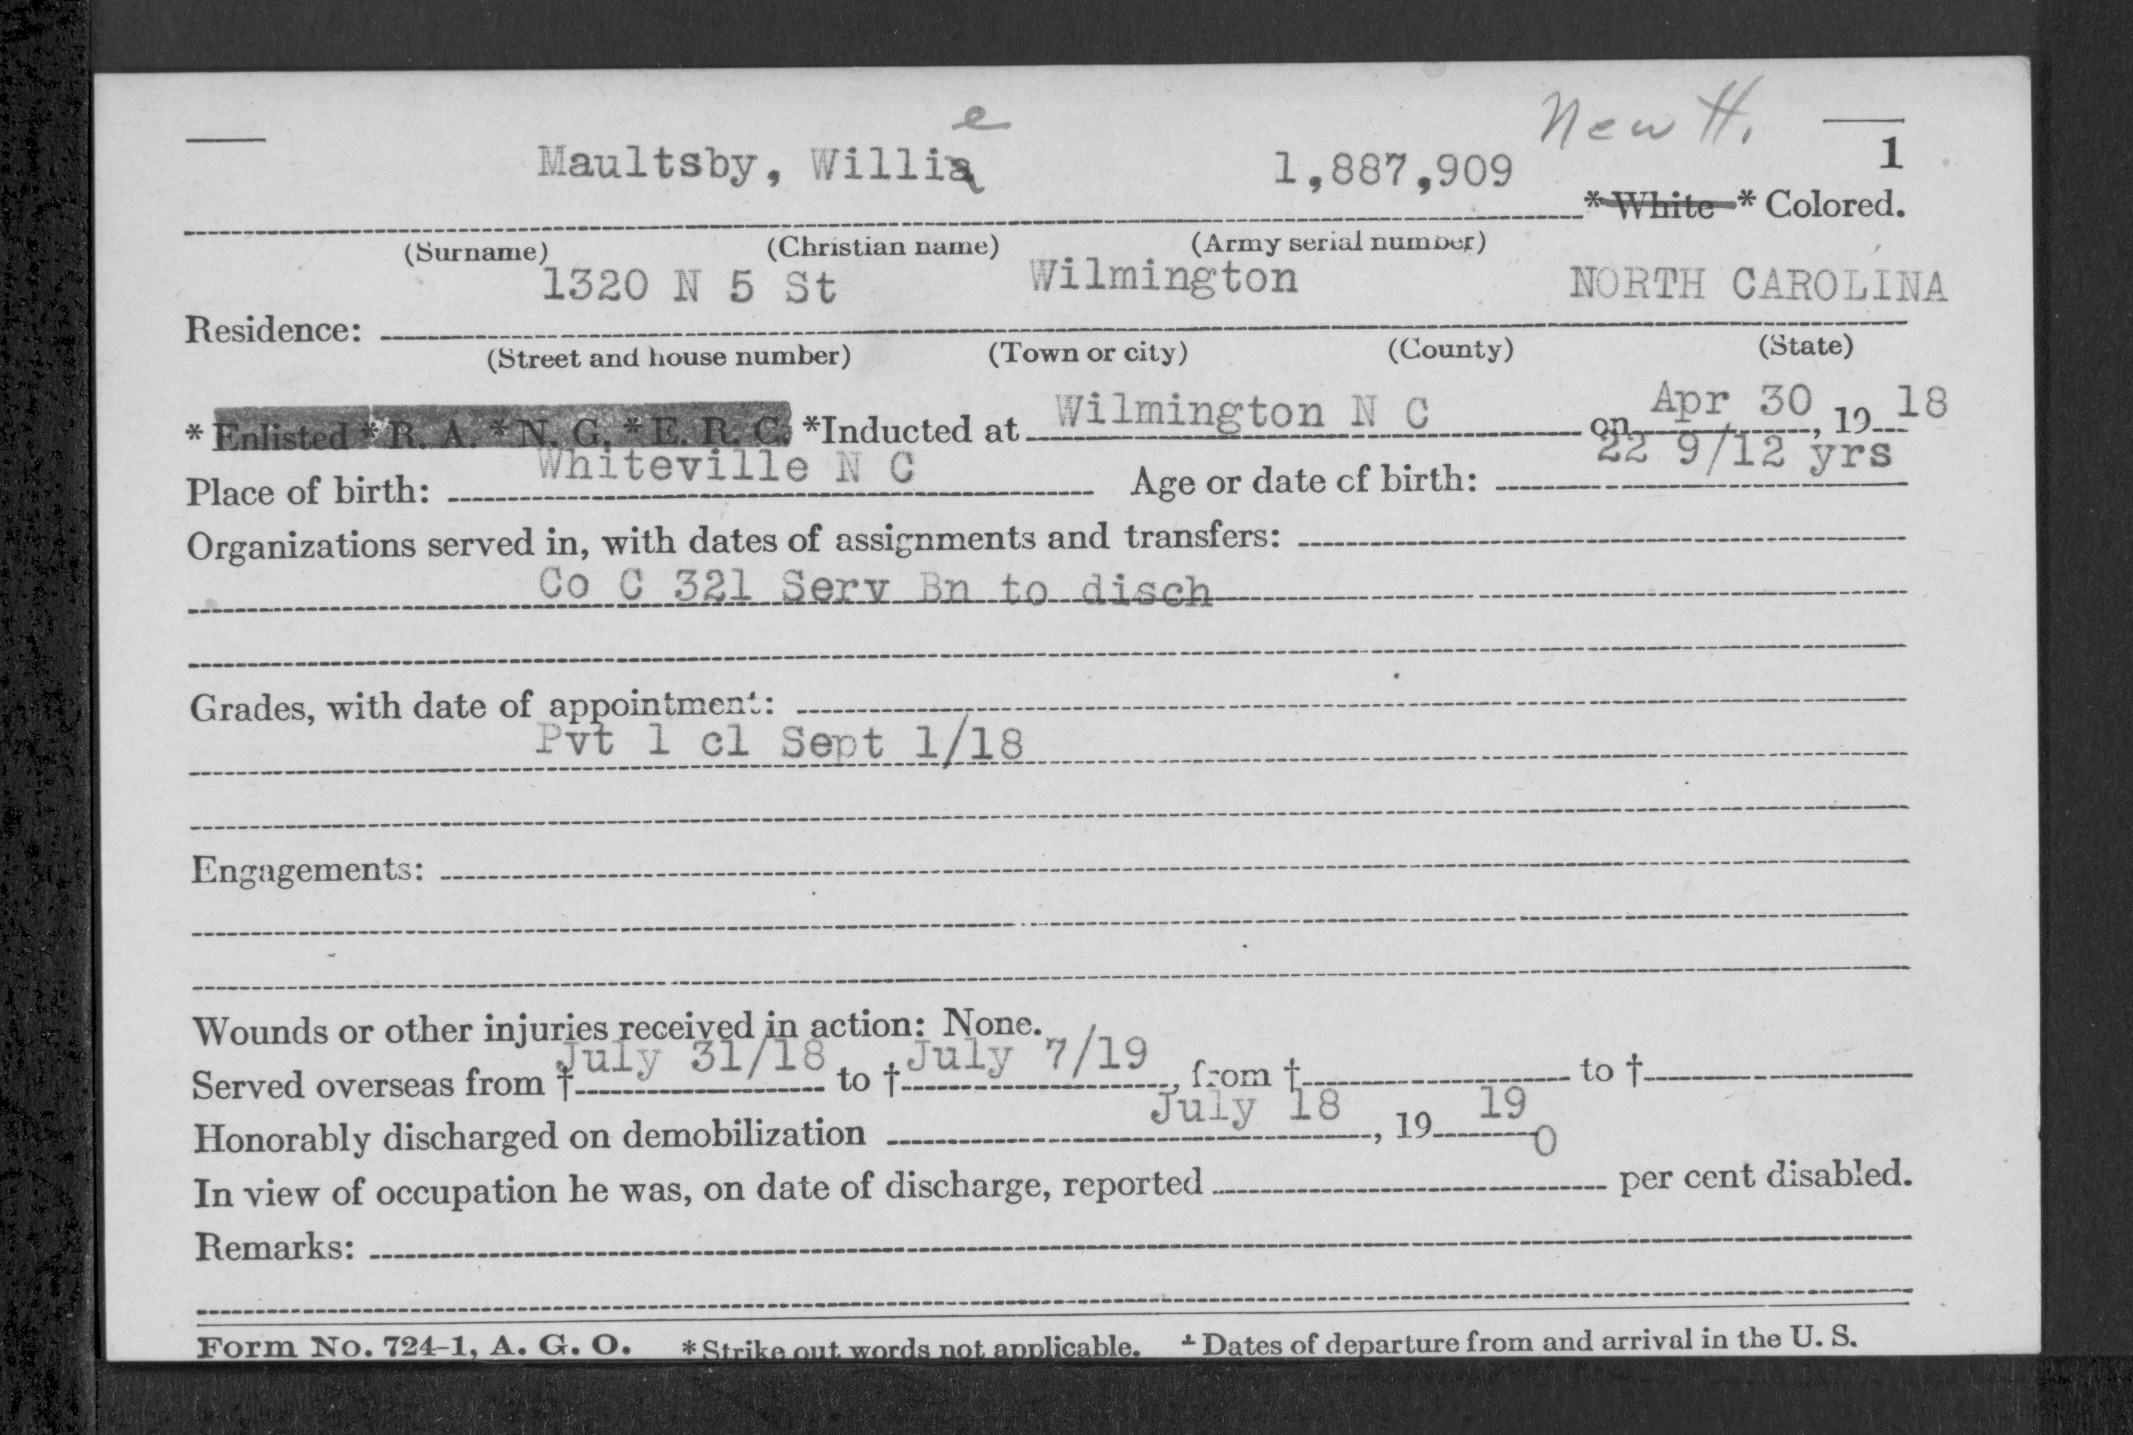 New H.
e
Maultsby, Willia 1,887,909 1
* White * Colored.
(Surname) (Christian name) (Army serial number)
1320 N 5 St Wilmington NORTH CAROLINA
Residence:
(Street and house number) (Town or city) (County) (State)
* Enlisted * R. A. * N. G. * E. R. C. *Inducted at Wilmington N C on Apr 30, 19 18
Place of birth: Whiteville N C Age or date of birth: 22 9/12 yrs
Organizations served in, with dates of assignments and transfers:
Co C 321 Serv Bn to disch
Grades, with date of appointment:
Pvt 1 cl Sept 1/18
Engagements:
Wounds or other injuries received in action: None.
Served overseas from † July 31/18 to † July 7/19, from † to †
Honorably discharged on demobilization July 18, 19 19
In view of occupation he was, on date of discharge, reported 0 per cent disabled.
Remarks:
Form No. 724-1, A. G. O. * Strike out words not applicable. † Dates of departure from and arrival in the U. S.